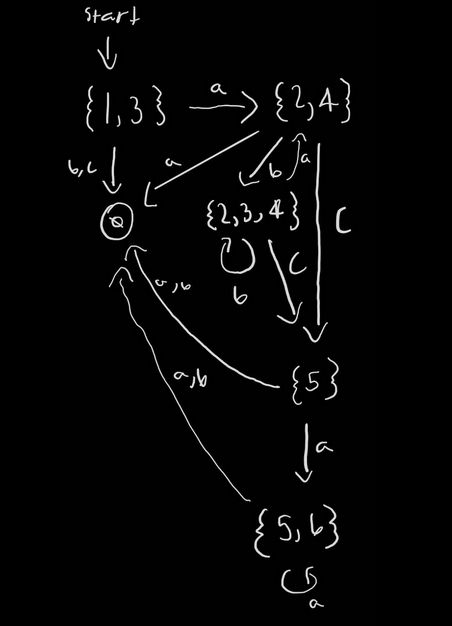 start
{1,3} a {2,4}
b,c a b a
∅ {2,3,4} C
C
a,b b
a,b {5}
a
{5,6}
a